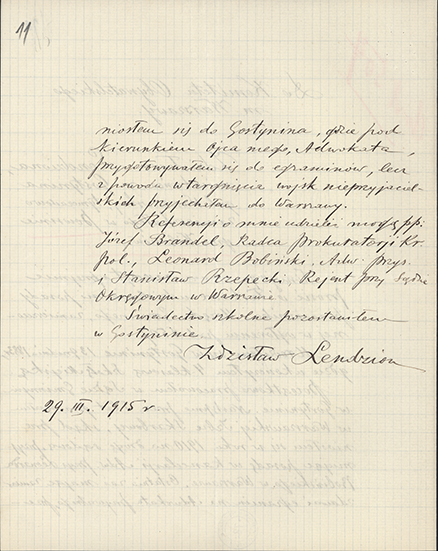 11
niosłem się do Gostynina, gdzie pod
kierunkiem Ojca mego, Adwokata,
przygotowywałem się do egzaminów, lecz
z powodu wtargnięcia wojsk nieprzyjaciel-
skich przyjechałem do Warszawy.
Referencji o mnie udzielić mogą pp:
Józef Brandel, Radca Prokuratorji Kr.
Pol., Leonard Bobiński, Adw. Przys.
i Stanisław Rzepecki, Rejent przy Sądzie
Okręgowym w Warszawie
Świadectwo szkolne pozostawiłem
w Gostyninie
Zdzisław Lendzion
29. III. 1915 r